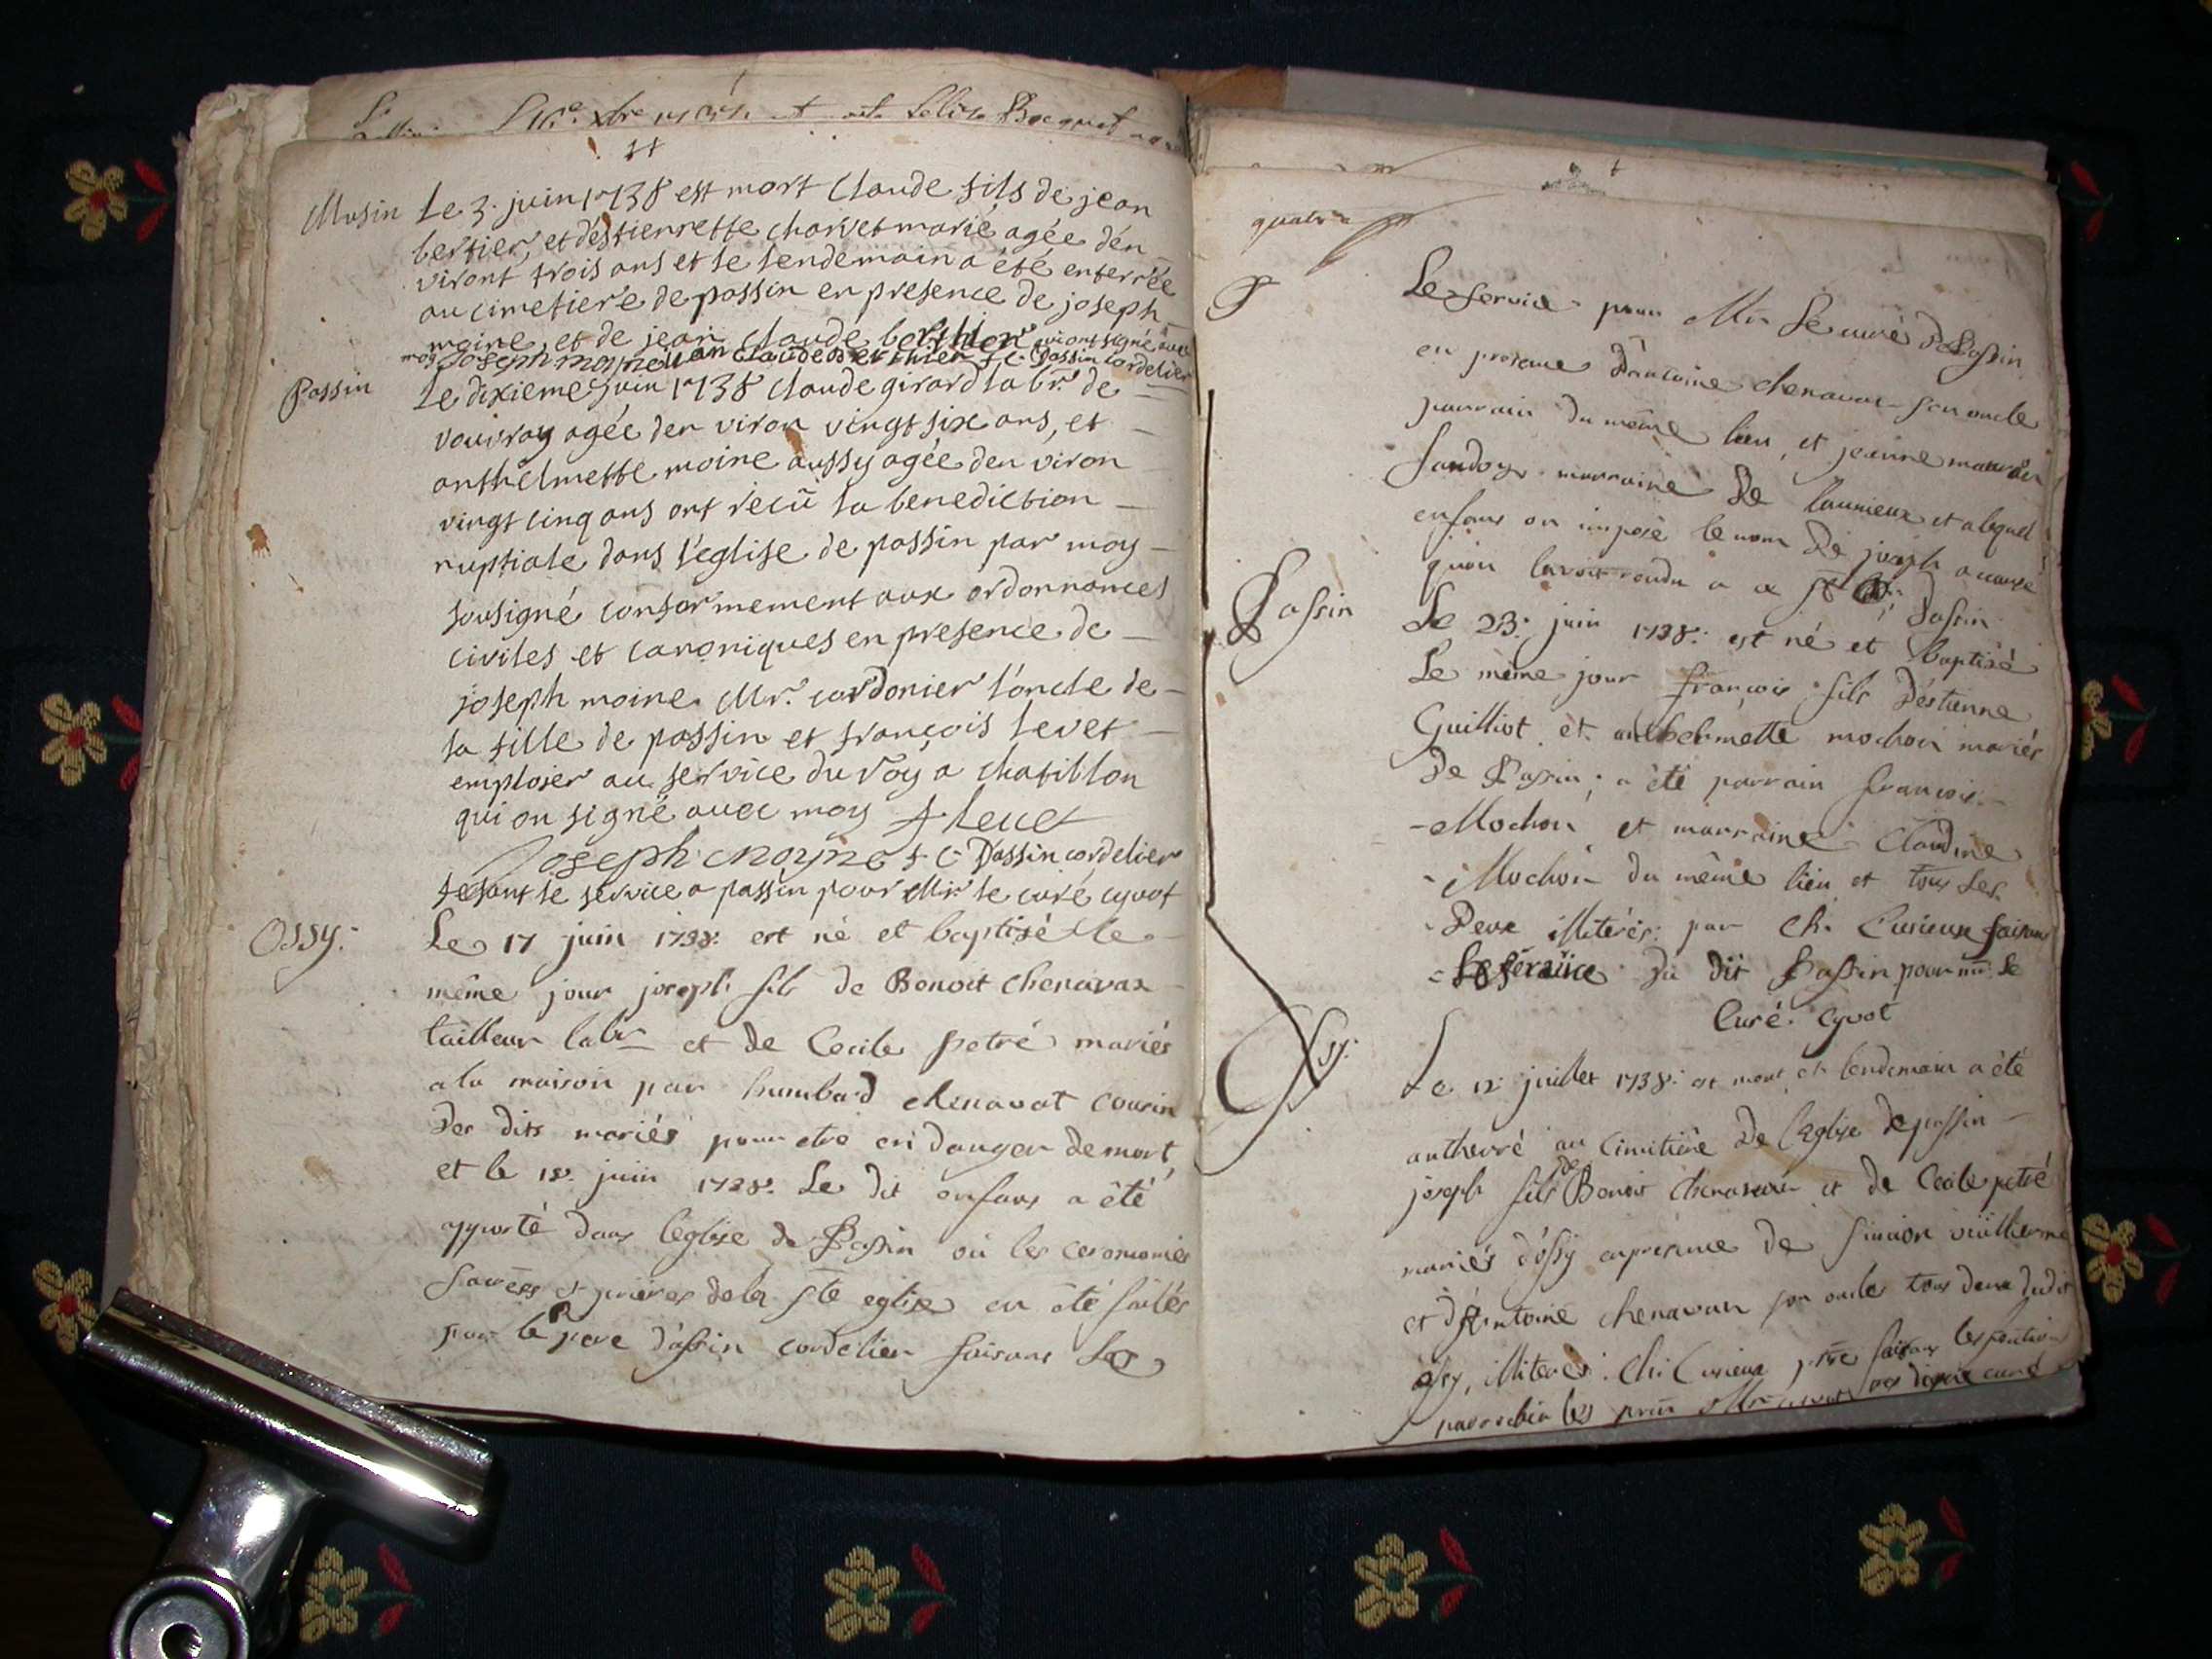 Musin Le 3. juin 1738 est mort Claude fils de jean
bertier, et déstiennette charvet marié agée dén
viront trois ans et le lendemain a été enterrée
au cimetiere de passin en presence de joseph
moine, et de jean claude berthier qui ont signé avec
moy Joseph moyne jean claude berthier f c Passin cordelier
Passin Le dixieme juin 1738 claude girard labr. de
vouvray agée den viron vingt six ans, et
anthelmette moine aussy agée den viron
vingt cinq ans ont reçû la benediction
nuptiale dans l'eglise de passin par moy
sousigné conformement aux ordonnances
civiles et canoniques en presence de
joseph moine Mr. cordonier l'oncle de
la fille de passin et françois levet
emploier au service du roy a chatillon
qui on signé avec moy f levet
Joseph moyne f. C. Passin cordelier
fesant le service a passin pour Mr. le curé cyvot
Ossy. Le 17 juin 1738. est né et baptizé le
même jour joseph fils de Benoit Chenavax
tailleur labr et de Cecile petré mariés
a la maison par humbard chenavat cousin
des dits mariés pour etre en danger de mort,
et le 18. juin 1738. Le dit enfans a été
apporté dans leglise de Passin ou les ceremonies
et prieres de la ste eglise on été faites
par le pere d'assin cordelier faisans Le
quatre
Le service pour Mr. Le curé de Passin
en presence d'antoine chenavax son oncle
parrain du même lieu, et jeanne
marraine de et alequel
enfans on imposé le nom de joseph a cause
quon lavoit rendu a ce St Dassin
Passin Le 23. juin 1738. est né et baptizé
Le même jour françois fils déstienne
Guilliot et. anthelmette mochon mariés
de Passin; a été parrain françois
Mochon et marraine Claudine
Mochon du même lieu et tous les
Deux illiterés. par Ch. Curieux faisans
Le service du dit Passin pour mr. le
Curé. Cyvot
Ossy. Le 12 juillet 1738. est mort et lendemain a été
antherré au cimitiere de l'eglise de passin
joseph fils de Benoit chenavax et de Cecile petré
mariés d'ossy en presence de simion vuilherme
et d'Antoine chenavax son oncle tous deux dudit
ossy, illiterés. Ch. Curieux ptre faisans les fonctions